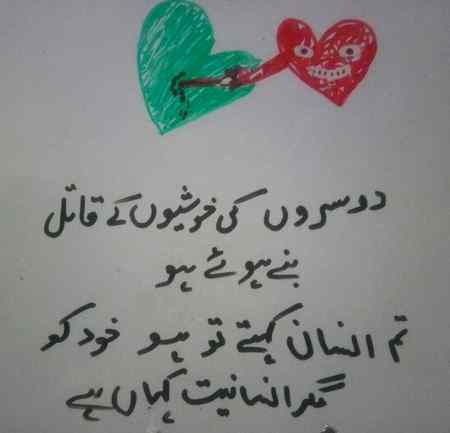 دوسروں کی خوشیوں کے قاتل
بنے ہوئے ہو
تم انسان کہتے تو ہو خود کو
مگر انسانیت کہاں ہے